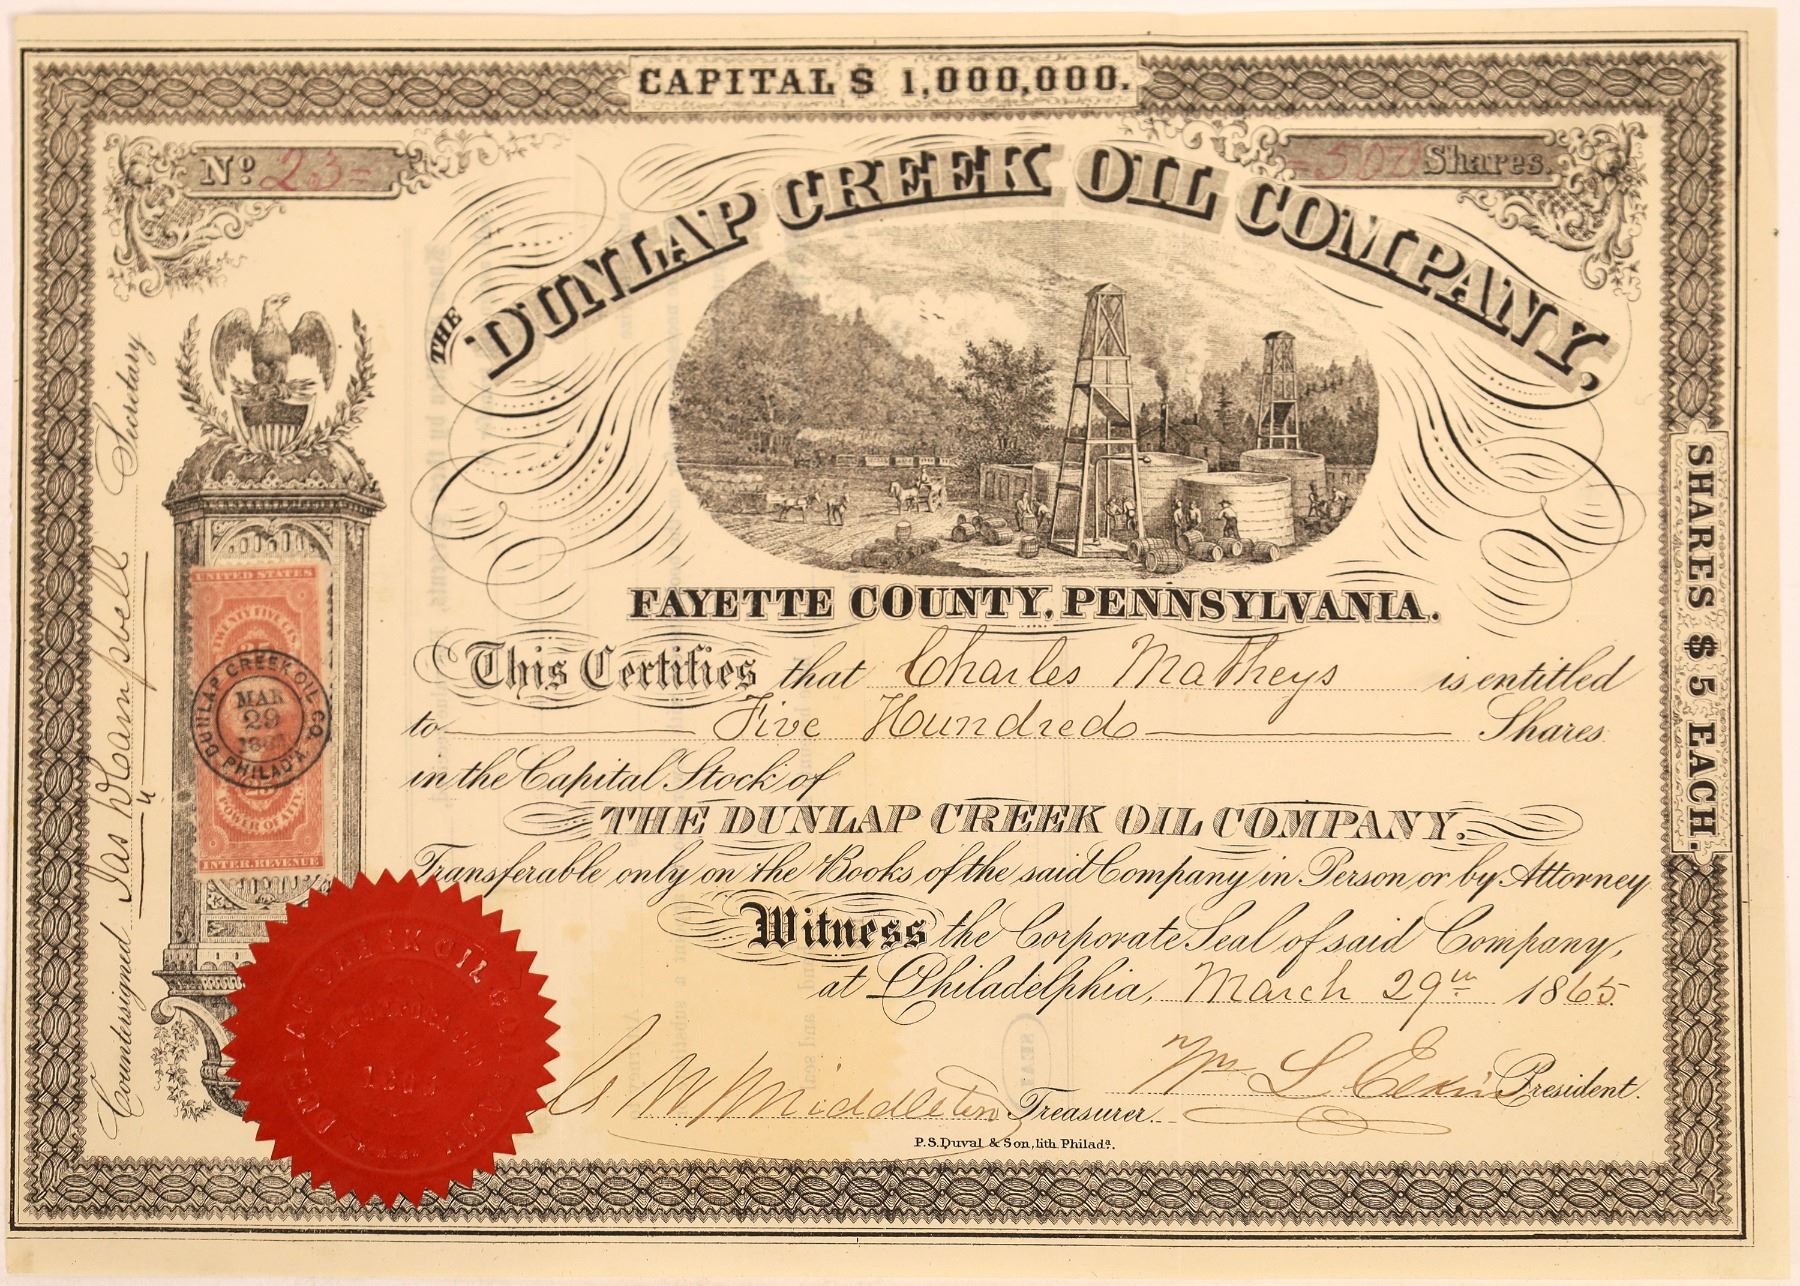 CAPITAL $ 1,000,000.
No. 23
500 Shares.
THE DUNLAP CREEK OIL COMPANY,
FAYETTE COUNTY, PENNSYLVANIA.
This Certifies that Charles Matheys is entitled
to Five Hundred Shares
in the Capital Stock of
THE DUNLAP CREEK OIL COMPANY.
Transferable only on the Books of the said Company in Person or by Attorney
Witness the Corporate Seal of said Company,
at Philadelphia, March 29th 1865.
W Middleton Treasurer.
Wm L Elkins President.
P.S. Duval & Son, lith Philada.
Countersigned Jas W Campbell Secretary
SHARES $ 5 EACH.
UNITED STATES
TWENTY FIVE CTS.
DUNLAP CREEK OIL CO.
MAR
29
PHILAD'A
POWER OF ATT'Y.
INTER. REVENUE
CREEK OIL
INCORPORATED